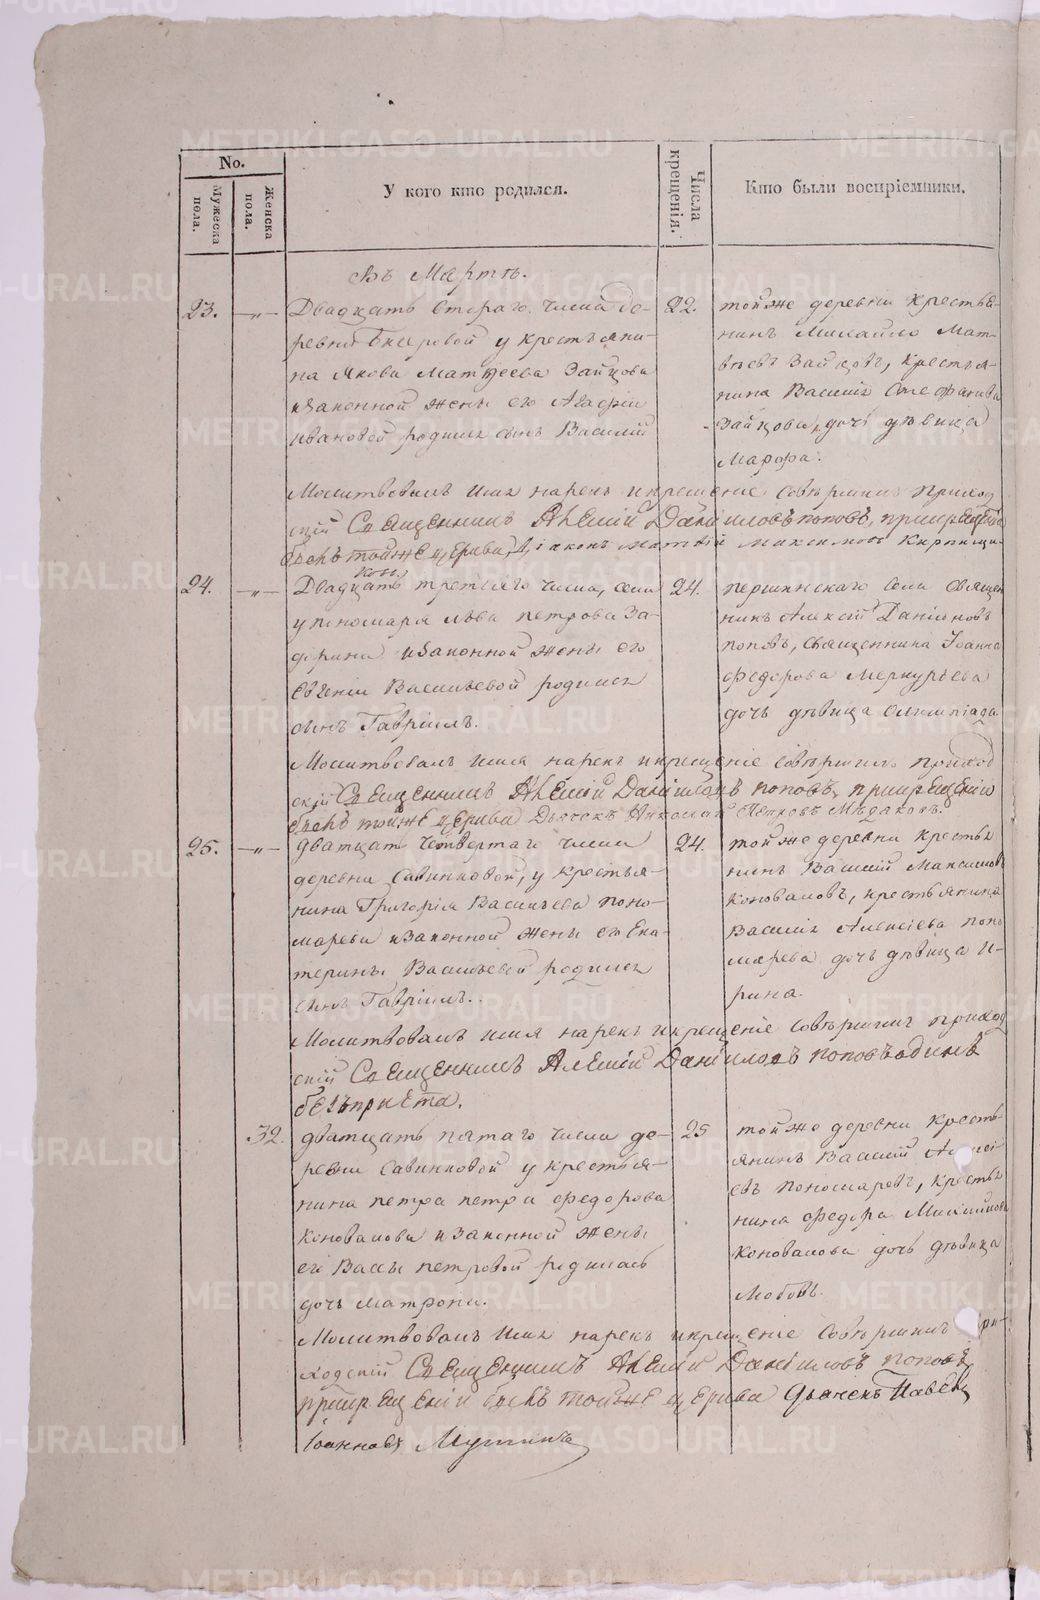 No.
Мужеска пола.
Женска пола.
У кого кто родился.
Числа крещенія.
Кто были воспріемники.
Въ Мартѣ.
23.
—„—
Двадцать втораго числа де-
ревни у крестьяни-
на Якова Матѳеева Зайцова
и законной жены его Агафіи
Ивановой родился сынъ Василій
22.
тойже деревни крестья-
нинъ Михайло Мат-
вѣевъ Зайцовъ, крестья-
нина Василія Стефанова
Зайцова, дочь дѣвица
Марфа.
Молитвовалъ имя нарекъ и крещеніе совѣршилъ приход
скій Священникъ Алексій Даніиловъ поповъ, прикрещеніи
былъ тойже церкви Діаконъ Матѳій Максимовъ Кирпищи-
ковъ
24.
—„—
Двадцать третьяго числа, села
у пономаря Льва петрова За-
дорина и законной жены его
Евгеніи Васильевой родился
сынъ Гавріилъ.
24.
першинскаго села священ
никъ Алексій Даніиловъ
поповъ, священника Іоанна
Федорова Меркурьева
дочь дѣвица Олимпіада
Молитвовалъ имя нарекъ и крещеніе совѣршилъ приход
скій Священникъ Алексій Даніиловъ поповъ, прикрещеніи
былъ тойже церкви Дьячекъ Николай Петровъ Мѣдяковъ.
25.
—„—
дватцать четвертаго числа
деревни Савинковой, у крестья-
нина Григорія Васильева поно-
марева и законной жены его Ека-
терины Васильевой родился
сынъ Гавріилъ.
24.
тойже деревни крестья
нинъ Василій Максимовъ
Коноваловъ, крестьянина
Василія Алексіева поно
марева дочь дѣвица И-
рина.
Молитвовалъ имя нарекъ и крещеніе совѣршилъ приход
скій Священникъ Алексій Даніиловъ поповъ одинъ
безъ причета.
32.
дватцать пятаго числа де-
ревни Савинковой у крестья-
нина петра петра федорова
Коновалова и законной жены
его петровой родилась
дочь Матрона.
25
тойже деревни кресть-
янинъ Василій Алексі-
евъ пономаревъ, крестья
нина федора Максимова
Коновалова дочь дѣвица
Любовь.
Молитвовалъ имя нарекъ и крещеніе совѣршилъ при-
ходскій Священникъ Алексій Даніиловъ поповъ,
прикрещеніи былъ тойже церкви Дьячекъ Павелъ
Іоанновъ
METRIKI.GASO-URAL.RU